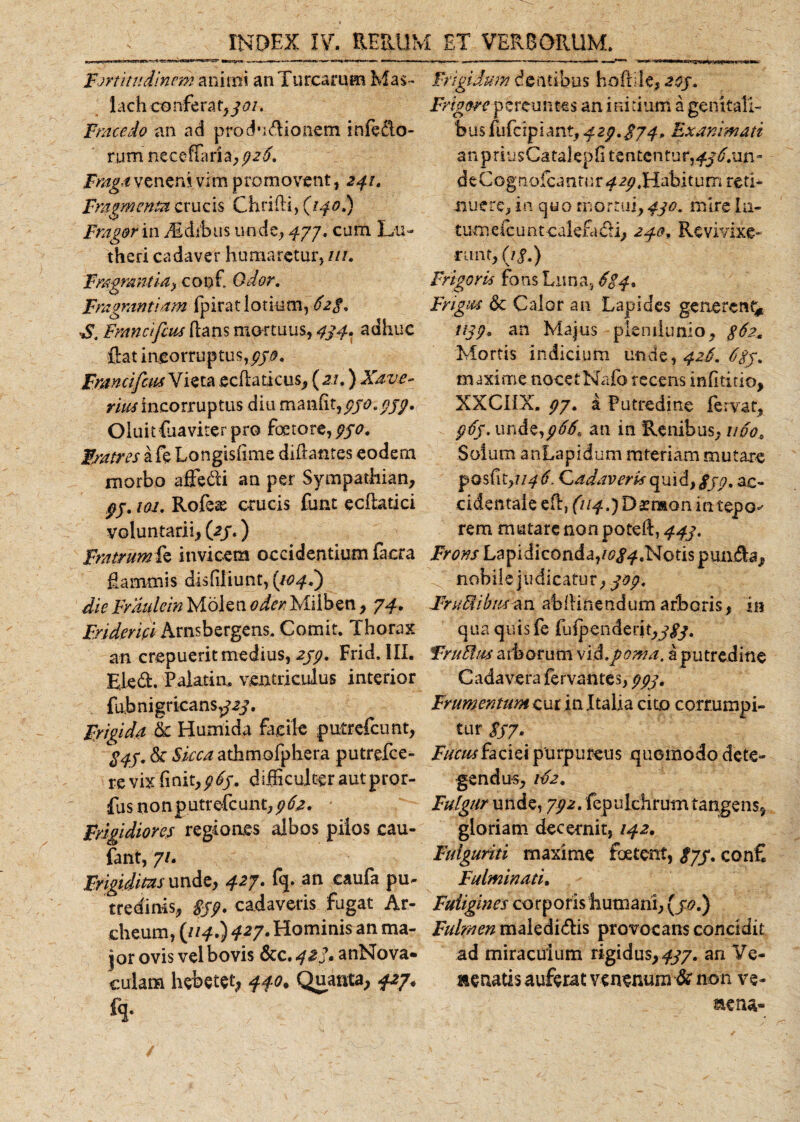 INDEX IV. RERUM ET VERBORUM.
Fortitudinem animi an Turcarum Mas-
lach conferat, 301.
Fracedo an ad productionem insecto-
rum necessaria, 926.
Fraga veneni vim promovent, 241.
Fragmenta crucis Christi, (140.)
Fragor in Ædibus unde, 477. cum Lu-
theri cadaver humaretur, 111.
Fragrantia, conf. Odor.
Fragrantiam spirat lotium, 628.
S. Franciscus stans mortuus, 434. adhuc
stat incorruptus, 950.
Franciscus Vieta ecstaticus, (21.) Xave-
rius incorruptus diu mansit, 950. 959.
Oluit suaviter pro fœtore, 950.
Fratres à se Longissime distantes eodem
morbo affecti an per Sympathian,
95. 101. Roseæ crucis sunt ecstatici
voluntarii, (25.)
Fratrum se invicem occidentium sacra
flammis dissiliunt, (104.)
die Fräulein Mölen oder Milben, 74.
Friderici Arnsbergens. Comit. Thorax
an crepuerit medius, 259. Frid. III.
Elect. Palatin. ventriculus interior
subnigricans, 323.
Frigida & Humida facile putrescunt,
845. & Sicca athmosphera putresce-
re vix sinit, 965. difficulter aut pror-
sus non putrescunt, 962.
Frigidiores regiones albos pilos cau-
sant, 71.
Frigiditas unde, 427. sq. an causa pu-
tredinis, 859. cadaveris fugat Ar-
cheum, (114.) 427. Hominis an ma-
jor ovis vel bovis &c. 423. an Nova-
culam hebetet, 440. Quanta, 427.
sq.
Frigidum dentibus hostile, 205.
Frigore pereuntes an initium à genitali-
bus suscipiant, 429. 874. Exanimati
an prius Catalepsi tententur, 436. un-
de Cognoscantur 429. Habitum reti-
nuere, in quo mortui, 430. mire In-
tumescunt calefacti, 240. Revivixe-
runt, (18.)
Frigoris fons Luna, 684.
Frigus & Calor an Lapides generent,
1139. an Majus plenilunio, 862.
Mortis indicium unde, 426. 685.
maxime nocet Naso recens insititio,
XXCIIX. 97. à Putredine servat,
965. unde, 966. an in Renibus, 1160.
Solum an Lapidum materiam mutare
possit, 1146. Cadaveris quid, 859. ac-
cidentale est, (114.) Dæmon in tepo-
rem mutare non potest, 443.
Frons Lapidiconda, 1084. Notis puncta,
nobile judicatur, 309.
Fructibus an abstinendum arboris, in
qua quis se suspenderit, 383.
Fructus arborum vid. poma. à putredine
Cadavera servantes, 993.
Frumentum cur in Italia cito corrumpi-
tur 857.
Fucus faciei purpureus quomodo dete-
gendus, 162.
Fulgur unde, 792. sepulchrum tangens,
gloriam decernit, 142.
Fulguriti maxime fœtent, 875. conf.
Fulminati.
Fuligines corporis humani, (50.)
Fulmen maledictis provocans concidit
ad miraculum rigidus, 437. an Ve-
nenatis auferat venenum & non ve-
nena-